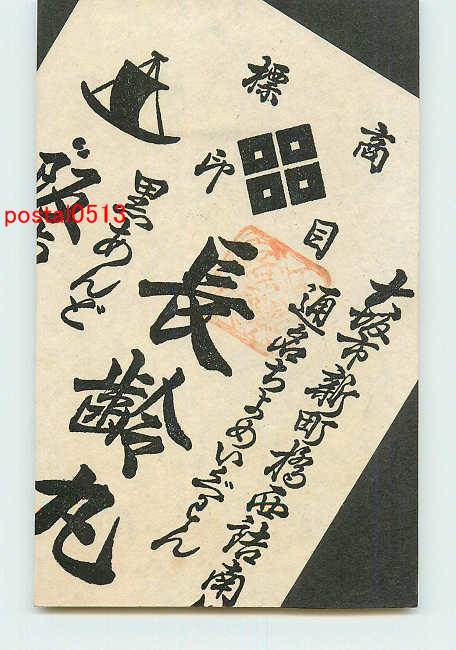 商標
目印
大坂市新町橋西詰南
通名ちよめいぐわん
長齢丸
黒あんど
postal0513